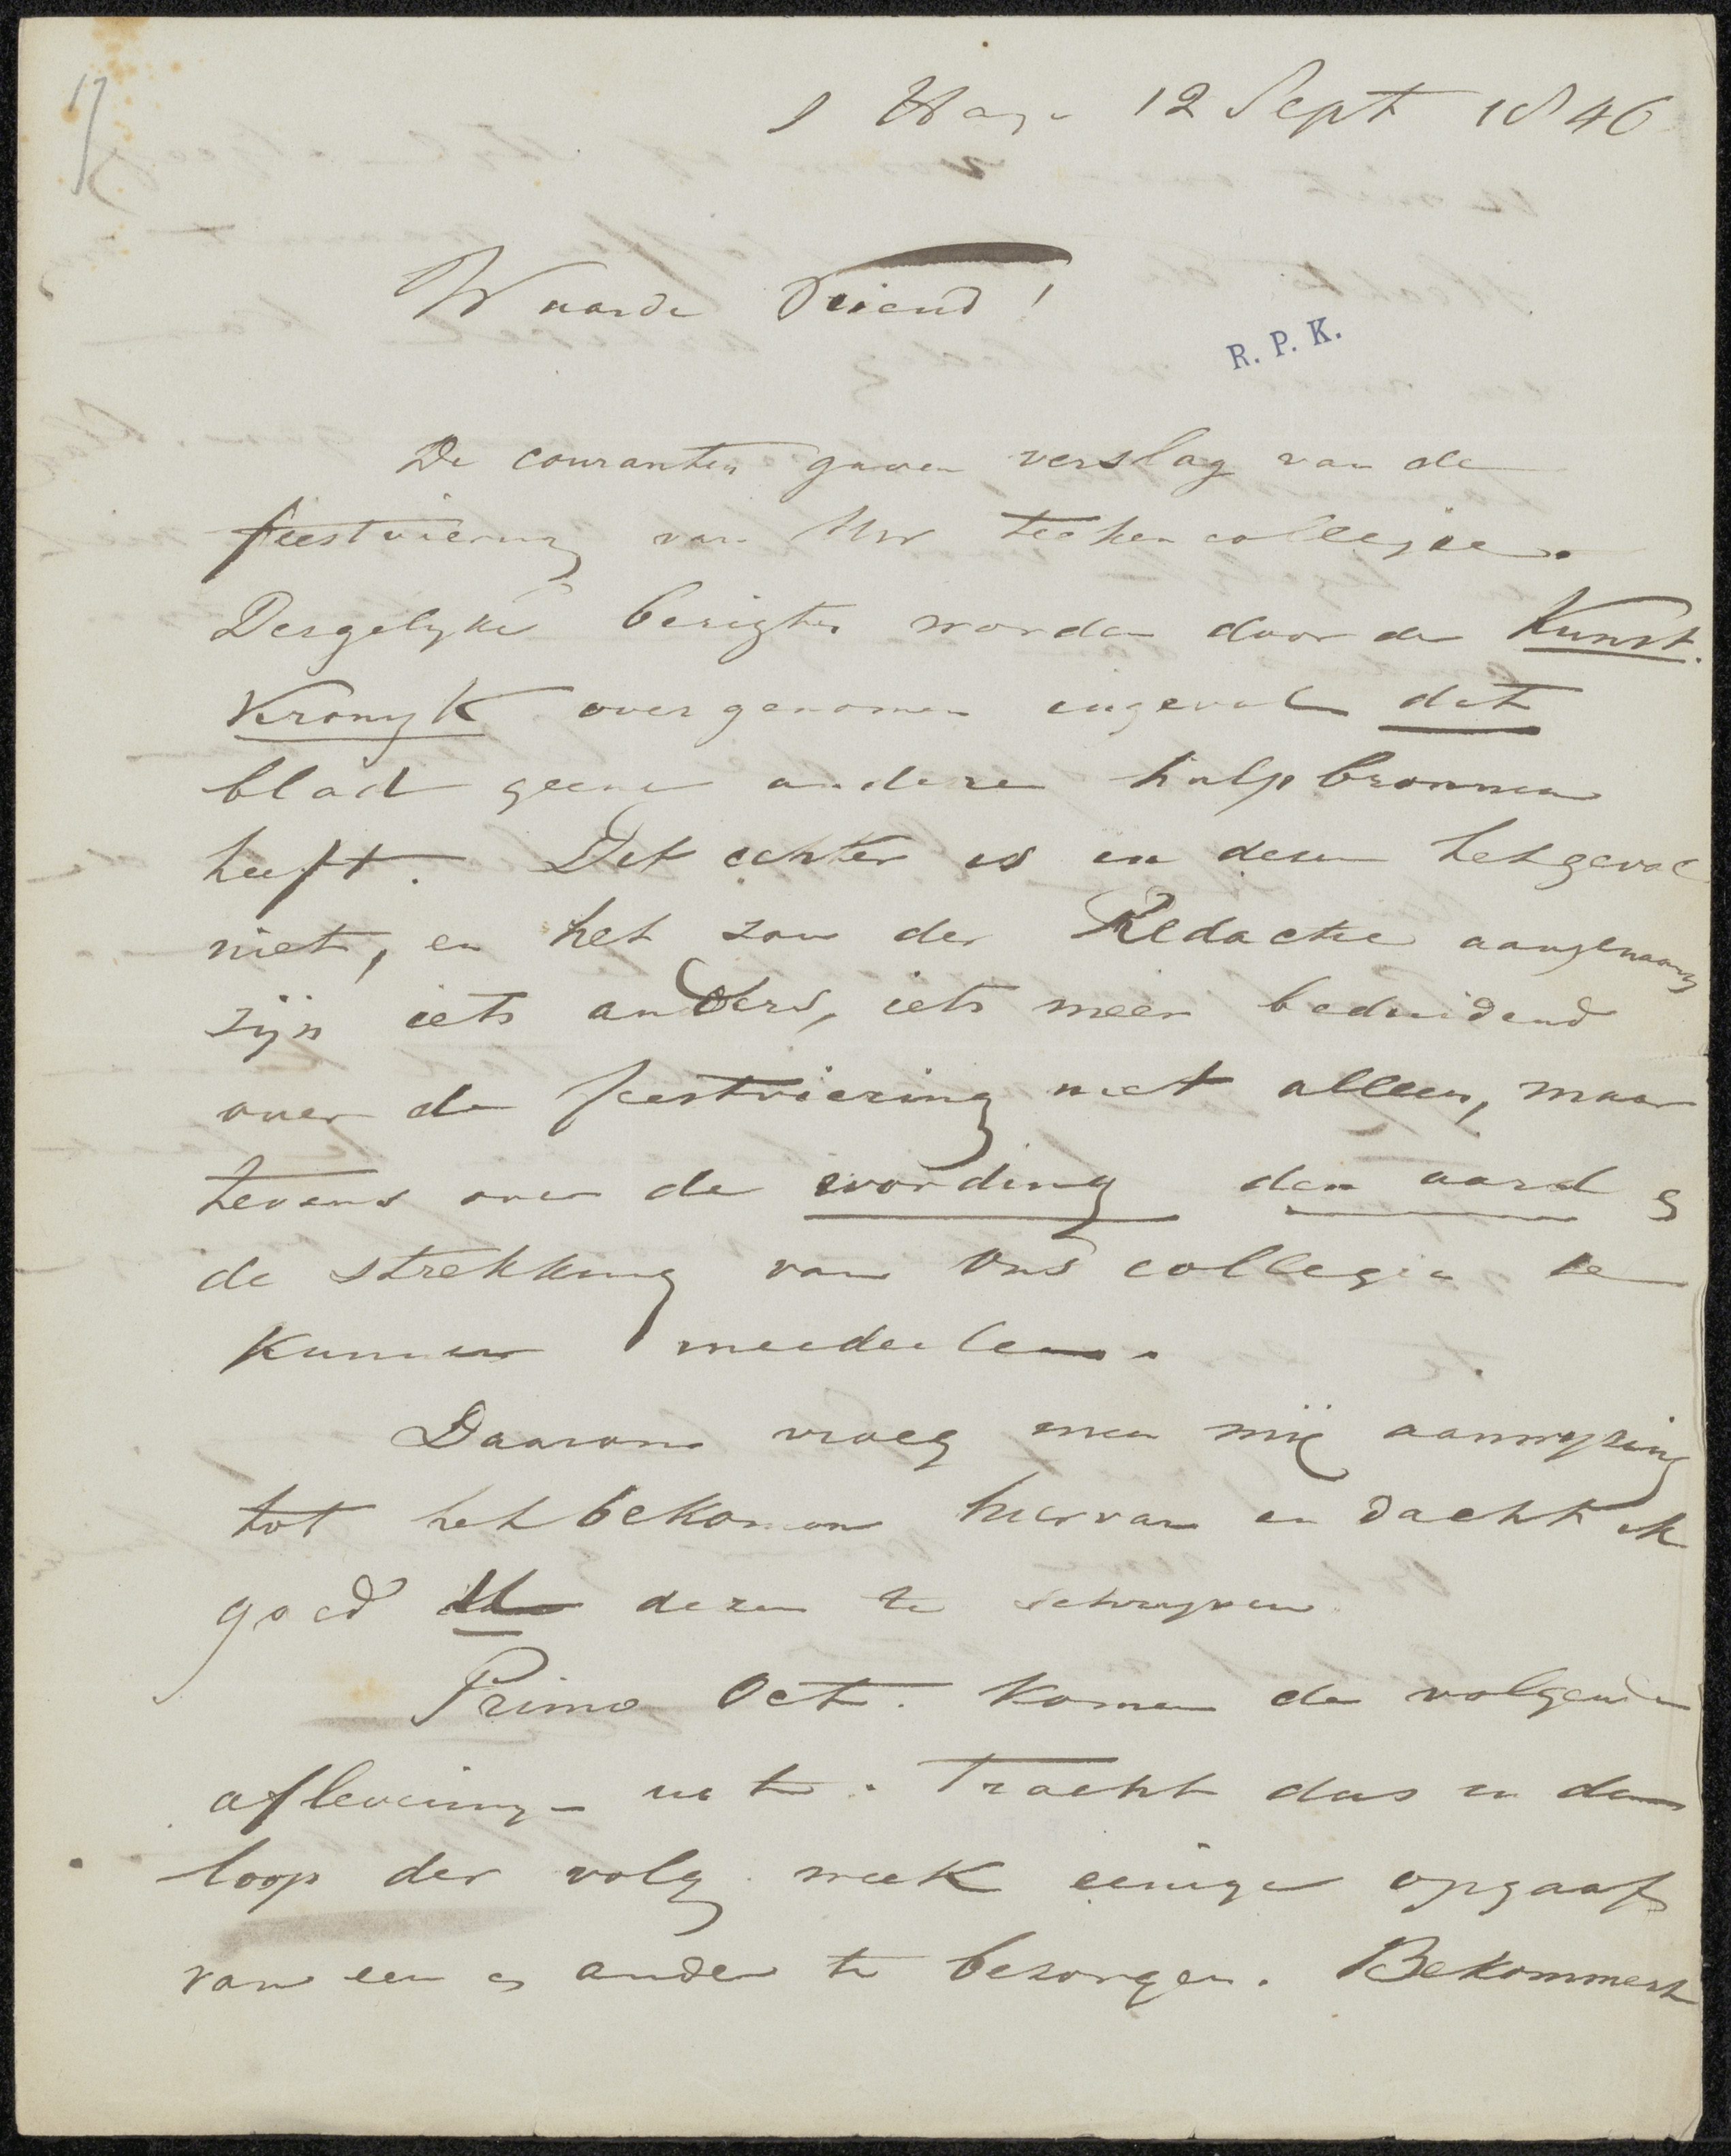 17
s Hage 12 Sept 1846
Waarde Vriend!
R. P. K.
De couranten gaven verslag van de
feestviering van Uw teekencollegie.
Dergelyke berigten worden door de Kunst.
Kronyk overgenomen ingeval dat
blad geene andere hulpbronnen
heeft. Dit echter is in dezen het geval
niet, en het zou der Redactie aangenaam
zijn iets anders, iets meer beduidend
over de feestviering niet alleen, maar
tevens over de wording den aard &
de strekking van Uws collegie te
kunnen meedeelen.
Daarom vroeg men mij aanwyzing
tot het bekomen hiervan en dacht ik
goed U dezen te schryven
Primo Oct. komen de volgende
aflevering uit. Tracht dus in den
loop der volg. week eenige opgaaf
van een & ander te bezorgen. Bekommert